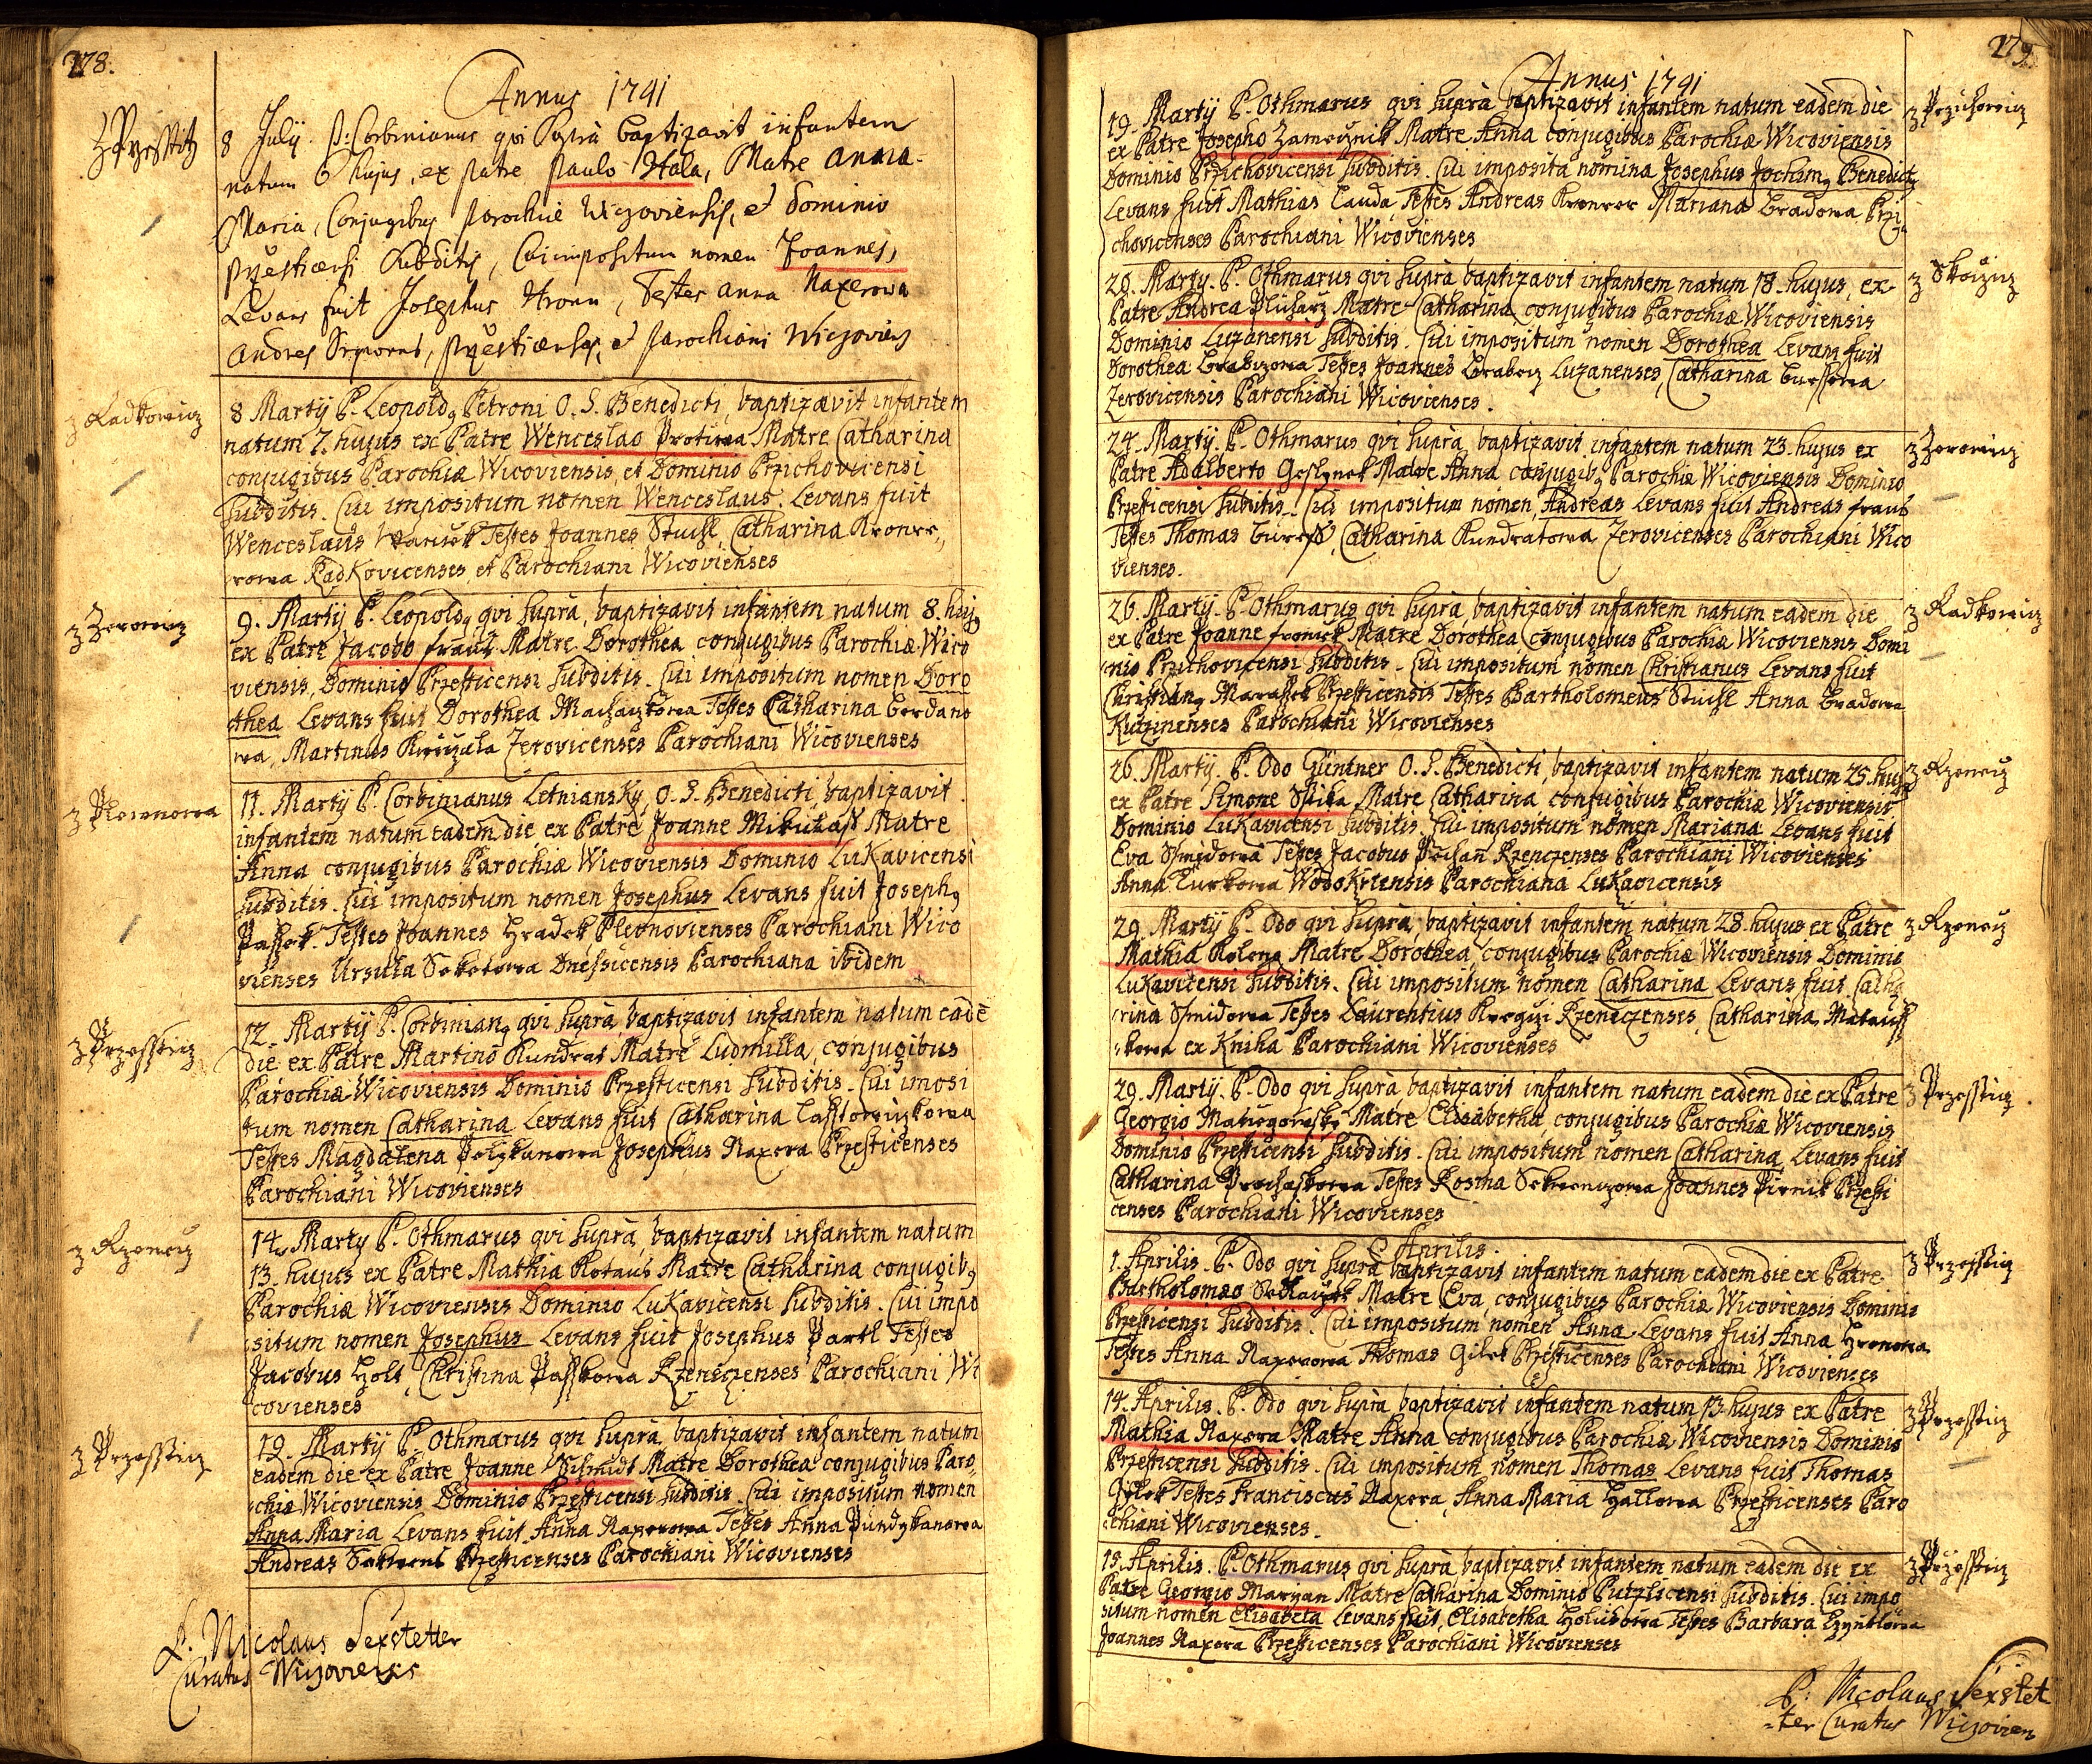 278.
Annus 1741
z Przesstitz
8 July P: Corbinianus qvi Supra baptizavit infantem
natum 6 hujus, ex patre Paulo Hala, Matre Anna
Maria, Conjugibus parochiæ Wiczoviensis, et Dominio
Przesticensi Subditis, Cui impositum nomen Joannes,
Levans fuit Josephus Hronn, Testes Anna Naxerowa
Andres, Przesticenses, et parochiani Wiczoviens
z Radkowicz
8 Martÿ P. Leopold9 Petroni O. S. Benedicti baptizavit infantem
natum 7. hujus ex Patre Wenceslao Protiwa Matre Catharina
conjugibus Parochiæ Wicoviensis, et Dominio Przichovicensi
Subditis. Cui impositum nomen Wenceslaus. Levans fuit
Wenceslaus Testes Joannes Stuchl, Catharina Kroner„
rowa Radkovicenses, et Parochiani Wicovienses
z Zerowicz
9. Martÿ P. Leopold9 qvi supra, baptizavit infantem natum 8. huj9
ex Patre Jacobo frauz Matre Dorothea conjugibus Parochiæ Wico
viensis, Dominio Przesticensi Subditis. Cui impositum nomen Doro
thea Levans fuit Dorothea Testes Catharina Bordano
wa, Martinus Zerovicenses Parochiani Wicovienses
z Plewnowa
11. Martÿ P. Corbinianus Letniansky, O. S. Benedicti, baptizavit
infantem natum eadem die, ex Patre Joanne Mikulass Matre
Anna conjugibus Parochiæ Wicoviensis Dominio Lukavicensi
Subditis. Cui impositum nomen Josephus Levans fuit Joseph9
Passek. Testes Joannes Hradek Plevnovienses Parochiani Wico
vienses Ursula Sokolowa Dnessicensis Parochiana ibidem
z Przessticz
12. Martÿ P. Corbinian9 qvi supra, baptizavit infantem natum eadē
die ex Patre Martino Kundrat Matre Ludmilla, conjugibus
Parochiæ Wicoviensis Dominio Przesticensi Subditis. Cui imposi
tum nomen Catharina Levans fuit Catharina
Testes Magdalena Josephus Naxera Przesticenses
Parochiani Wicovienses
z Rzenecz
14. Marty P. Othmarus qvi supra, baptizavit infantem natum
13. hujus ex Patre Mathia Kotaus Matre Catharina conjugib9
Parochiæ Wicoviensis Dominio Lukavicensi Subditis. Cui impo
situm nomen Josephus Levans fuit Josephus Partl Testes
Jacobus Holt, Christina Passkowa Rzeneczenses Parochiani Wi
covienses
z Przessticz
19. Martÿ P. Othmarus qvi supra, baptizavit infantem natum
eadem die ex Patre Joanne Schmidt Matre Dorothea conjugibus Paro„
chiæ Wicoviensis Dominio Przesticensi Subditis. Cui impositum nomen
Anna Maria Levans fuit Anna Naxerowa Testes Anna Pundzkanowa
Andreas Przesticenses Parochiani Wicovienses
P. Nicolaus Sexstetter
Curatus Wiczoviensis
279.
Annus 1741
z Przichowicz
19. Martÿ P. Othmarus qvi supra baptizavit infantem natum eadem die
ex Patre Josepho Zamecznick Matre Anna conjugibus Parochiæ Wicoviensis
Dominio Przichovicensi Subditis. Cui imposita nomina Josephus Jochim9 Benedict9
Levans fuit Mathias Lauda, Testes Andreas Kronrer Mariana Bradowa Przi„
chovicenses Parochiani Wicovienses
z Skocziz
20. Marty. P. Othmarus qvi supra, baptizavit infantem natum 18. hujus, ex
Patre Andrea Plicharz Matre Catharina, conjugibus Parochiæ Wicoviensis
Dominio Luzanensi Subditis. Cui impositum nomen Dorothea Levans fuit
Dorothea Brabczowa Testes Joannes Brabecz Luzanenses, Catharina Burssowa
Zerovicensis Parochiani Wicovienses.
z Zerowicz
24. Martÿ. P. Othmarus qvi supra, baptizavit infantem natum 23. hujus ex
Patre Adalberto Matre Anna conjugib9 Parochiæ Wicoviensis Dominio
Przesticensi Subditis. Cui impositum nomen, Andreas Levans fuit Andreas fraus
Testes Thomas Buress, Catharina Kundratowa Zerovicenses Parochiani Wico
vienses.
z Radkowicz
26. Martÿ. P. Othmarus qvi supra, baptizavit infantem natum eadem die
ex Patre Joanne fronick Matre Dorothea conjugibus Parochiæ Wicoviensis Domi
nio Przichovicensi Subditis. Cui impositum nomen Christianus Levans fuit
Christian9 Przesticensis Testes Bartholomeus Stuchl Anna Bradowa
Parochiani Wicovienses
z Rzenecz
26. Martÿ. P. Odo Güntner O. S. Benedicti, baptizavit infantem natum 25. huj9
ex Patre Simone Spika Matre Catharina conjugibus Parochiæ Wicoviensis
Dominio Lukavicensi Subditis. Cui impositum nomen Mariana Levans fuit
Eva Smidowa Testes Jacobus Rzenczenses Parochiani Wicovienses
Anna Turkowa Wodokrtensis Parochiana Lukavicensis
z Rzenecz
29. Martÿ P. Odo qvi supra, baptizavit infantem natum 28. hujus ex Patre
Mathia Kolena Matre Dorothea conjugibus Parochiæ Wicoviensis Dominio
Lukavicensi Subditis. Cui impositum nomen Catharina Levans fuit Catha
rina Smidowa Testes Laurentius Rzeneczenses, Catharina
ex Kniha Parochiani Wicovienses
z Przessticz
29. Martÿ. P. Odo qvi supra baptizavit infantem natum eadem die ex Patre
Georgio Matre Elisabetha, conjugibus Parochiæ Wicoviensis
Dominio Przesticensi Subditis. Cui impositum nomen Catharina Levans fuit
Catharina Prochaskowa Testes Rosina Joannes Pirnik Przesti
censes Parochiani Wicovienses
Aprilis.
z Przessticz
1. Aprilis. P. Odo qvi supra baptizavit infantem natum eadem die ex Patre
Bartholomæo Sedlaczek Matre Eva, conjugibus Parochiæ Wicoviensis Dominio
Przesticensi Subditis. Cui impositum nomen Anna Levans fuit Anna Hronowa
Testes Anna Naxerowa Thomas Gilek Przesticenses Parochiani Wicovienses
z Przessticz
14. Aprilis. P. Odo qvi supra baptizavit infantem natum 13. hujus ex Patre
Mathia Naxera Matre Anna conjugibus Parochiæ Wicoviensis Dominio
Przesticensi Subditis. Cui impositum nomen Thomas Levans fuit Thomas
Gilek Testes Franciscus Naxera, Anna Maria Hallowa Przesticenses Paro
chiani Wicovienses.
z Przessticz
15. Aprilis. P. Othmarus qvi supra baptizavit infantem natum eadem die ex
Patre Georgio Maryan Matre Catharina Dominio Putzlicensi Subditis. Cui impo
situm nomen Elisabeta Levans fuit, Elisabetha Holubowa Testes Barbara
Joannes Naxera Przesticenses Parochiani Wicovienses
P. Nicolaus Sexstet
-ter Curatus Wiczovien